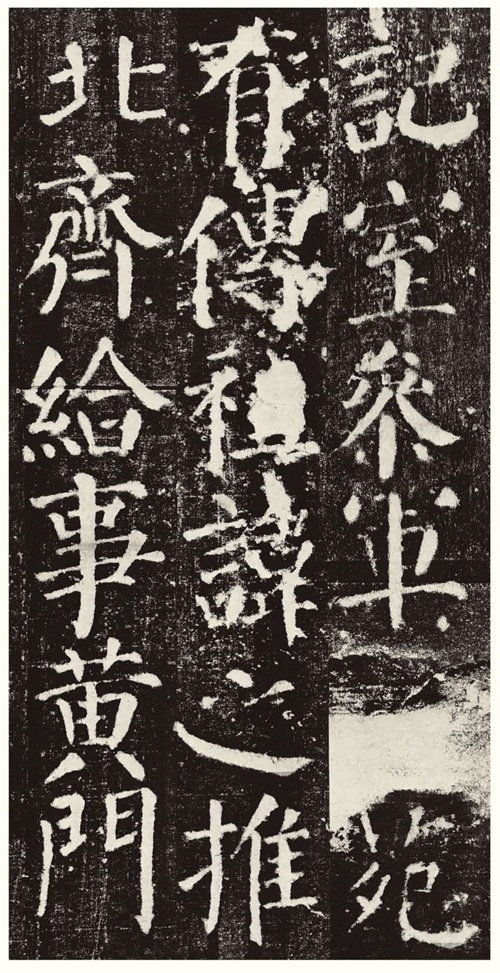 記室參軍苑
有傳祖諱之推
北齊給事黃門